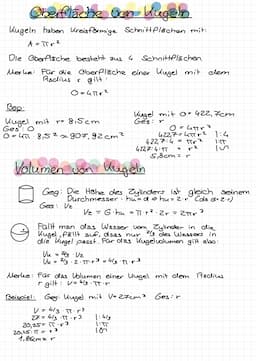 Oberfläche von Kugeln
Kugeln haben kreisförmige Schnittflächen mit:
A = π r²
Die Oberfläche besteht aus 4 Schnittflächen
Merke: Für die Oberfläche einer Kugel mit dem
Radius r gilt:
O = 4π r²
Bsp:
Kugel mit r = 8,5cm
Ges: O
O = 4π · 8,5² ≈ 907,92 cm²
Kugel mit O = 422,7cm
Ges: r
O = 4π r²
422,7 = 4π r² |:4
422,7:4 = π r² |:π
422,7:4:π = r² |√
5,8cm = r
Volumen von Kugeln
Geg: Die Höhe des Zylinders ist gleich seinem
Durchmesser:
Ges: Vz
Vz = G · hz = π · r² · 2r = 2π r³
Füllt man das Wasser vom Zylinder in die
Kugel, fällt auf, dass nur ⅔ des Wassers in
die Kugel passt. Für das Kugelvolumen gilt also:
Vk = ⅔ · Vz
Vk = ⅔ · 2 · π · r³ = 4/3 · π · r³
Merke: Für das Volumen einer Kugel mit dem Radius
r gilt: V = 4/3 · π · r³
Beispiel: Geg: Kugel mit V = 27cm³ Ges: r
V = 4/3 π · r³
27 = 4/3 · π · r³ |: 4/3
20,25 = π · r³ |:π
20,25:π = r³
1,86cm = r